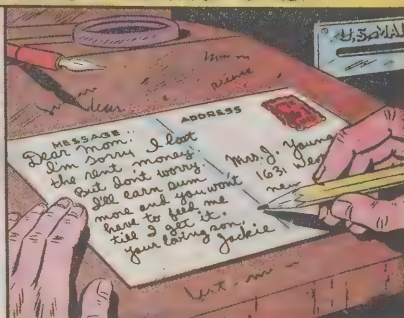 MESSAGE
Dear Mom..
I'm sorry I lost
the rent money.
But dont worry
I'll earn sum
more and you wont
have to feed me
till I get it.
your loving son,
Jackie
ADDRESS
Mrs. J. Young
1631 West
new